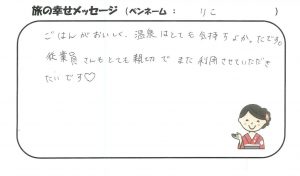 旅の幸せメッセージ (ペンネーム： りこ )
ごはんがおいしく、温泉はとても気持ちよかったです。
従業員さんもとても親切で また利用させていただき
たいです♡